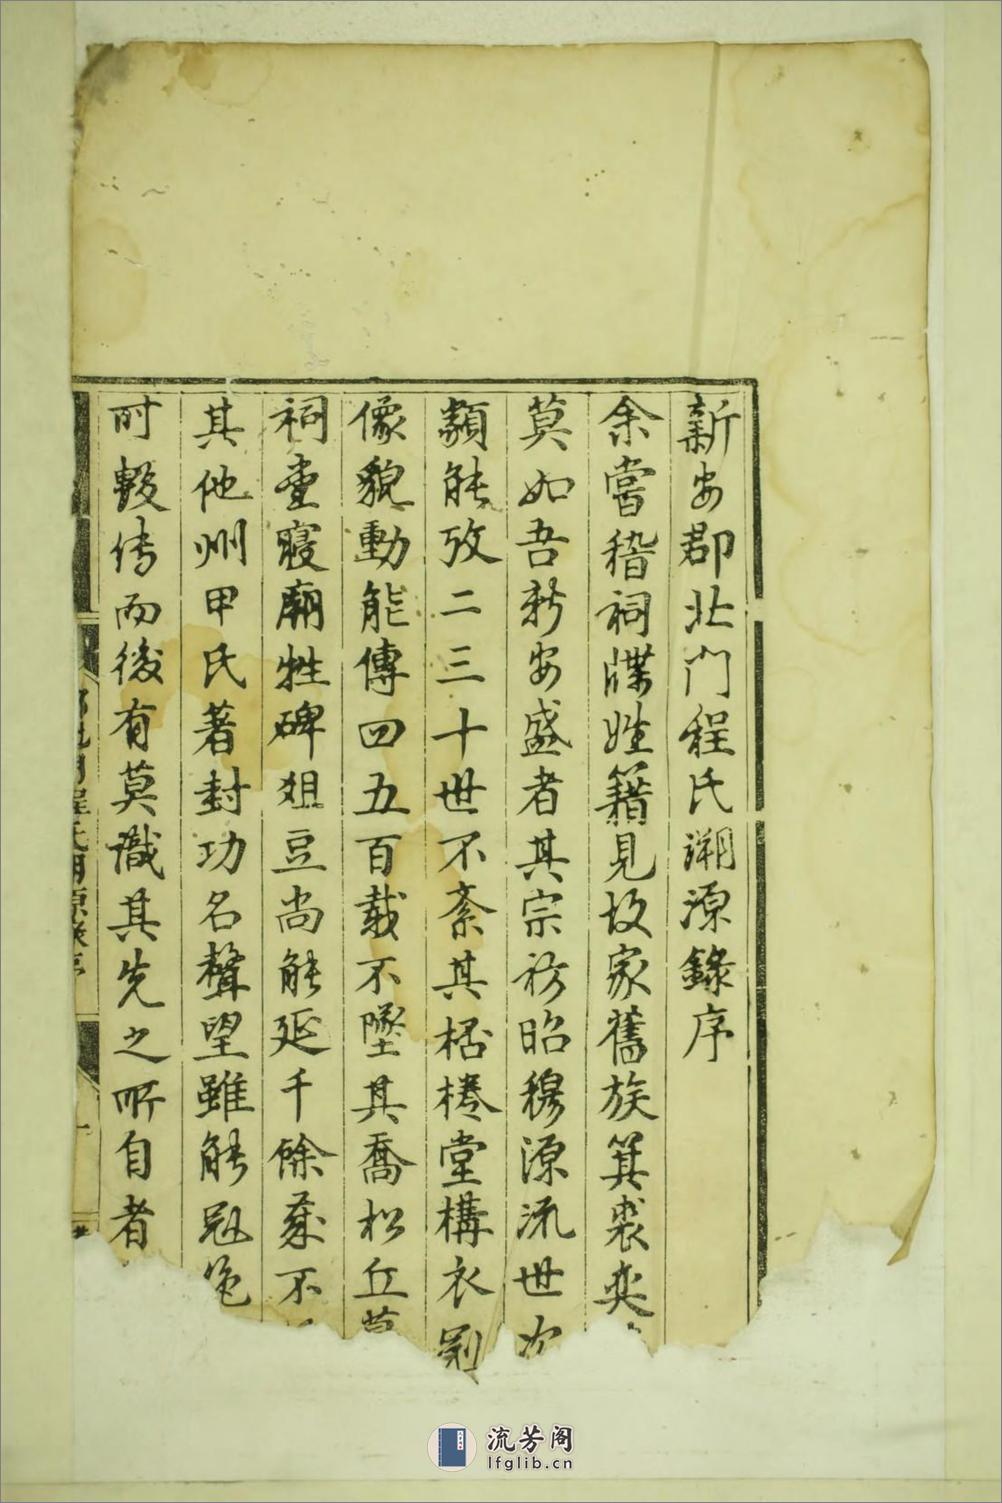 新安郡北門程氏溯源錄序
余嘗稽祠牒姓籍見故家舊族箕裘奕
莫如吾新安盛者其宗祊昭穆源流世次
類能攷二三十世不紊其桮棬堂構衣
像貌動能傳四五百載不墜其喬松丘
祠堂寢廟牲碑俎豆尚能延千餘歲不
其他州甲氏著封功名聲望雖能冠
时轂传而後有莫識其先之所自者
流芳阁
lfglib.cn